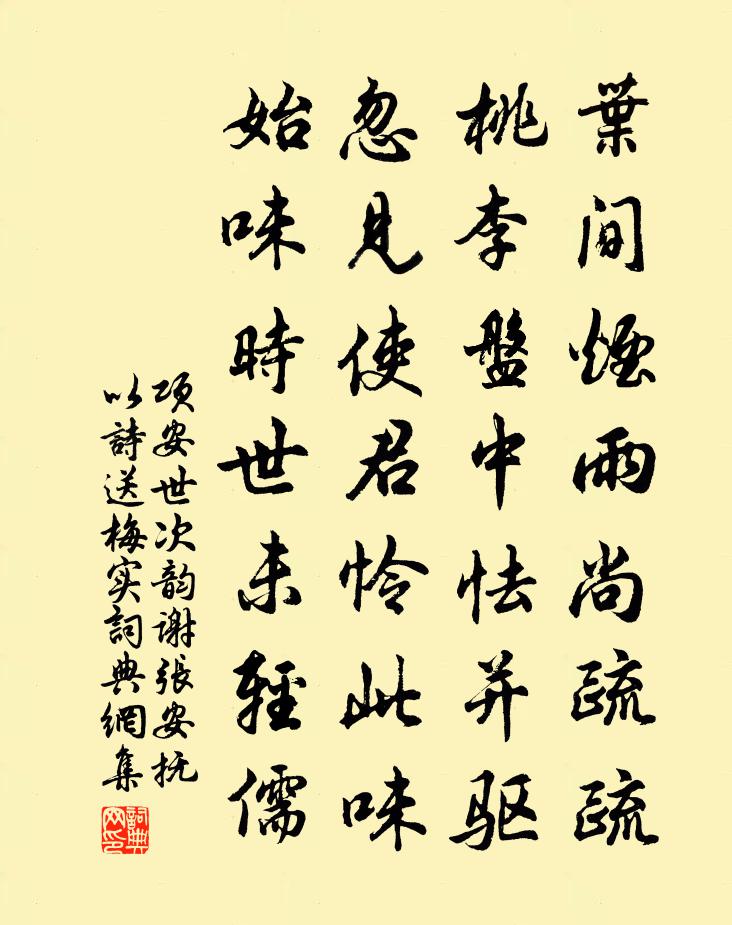 葉間煙雨尚疏疏
桃李盤中怯并驱
忽見使君怜此味
始味時世未輕儒
项安世次韵谢張安抚
以詩送梅实詞典網集
詞典網印